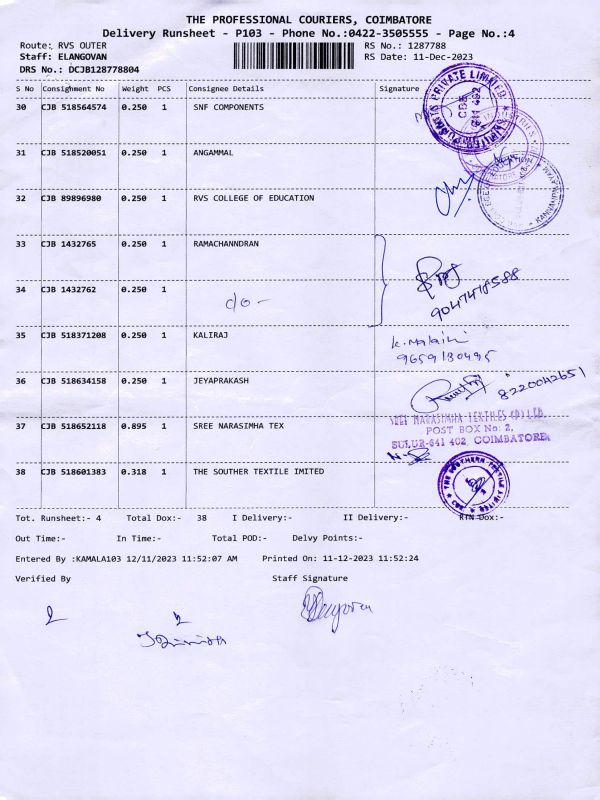 THE PROFESSIONAL COURIERS, COIMBATORE
Delivery Runsheet - P103 - Phone No.:0422-3505555 - Page No.:4
Route: RVS OUTER RS No.: 1287788
Staff: ELANGOVAN RS Date: 11-Dec-2023
DRS No.: DCJB128778804
S No Consignment No Weight PCS Consignee Details Signature
30 CJB 518564574 0.250 1 SNF COMPONENTS
31 CJB 518520051 0.250 1 ANGAMMAL
32 CJB 89896980 0.250 1 RVS COLLEGE OF EDUCATION
33 CJB 1432765 0.250 1 RAMACHANNDRAN
34 CJB 1432762 0.250 1 c/o -
9047474588
35 CJB 518371208 0.250 1 KALIRAJ
9659130495
36 CJB 518634158 0.250 1 JEYAPRAKASH
8220042651
37 CJB 518652118 0.895 1 SREE NARASIMHA TEX
SREE NARASIMHA TEXTILES (P) LTD.
POST BOX No: 2,
SULUR-641 402, COIMBATORE
38 CJB 518601383 0.318 1 THE SOUTHER TEXTILE IMITED
THE SOUTHERN TEXTILE LIMITED
Tot. Runsheet:- 4 Total Dox:- 38 I Delivery:- II Delivery:- RTN Dox:-
Out Time:- In Time:- Total POD:- Delvy Points:-
Entered By :KAMALA103 12/11/2023 11:52:07 AM Printed On: 11-12-2023 11:52:24
Verified By Staff Signature